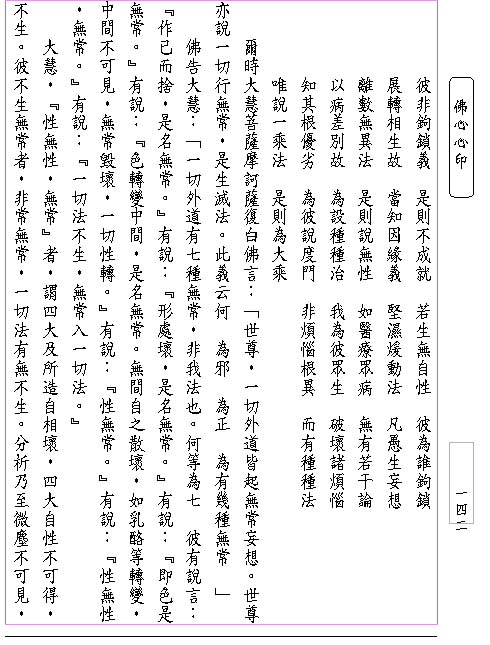 佛心心印
彼非鉤鎖義　是則不成就　若生無自性　彼為誰鉤鎖
展轉相生故　當知因緣義　堅濕煖動法　凡愚生妄想
離數無異法　是則說無性　如醫療眾病　無有若干論
以病差別故　為設種種治　我為彼眾生　破壞諸煩惱
知其根優劣　為彼說度門　非煩惱根異　而有種種法
唯說一乘法　是則為大乘
爾時大慧菩薩摩訶薩復白佛言：「世尊‧一切外道皆起無常妄想。世尊
亦說一切行無常‧是生滅法。此義云何　為邪　為正　為有幾種無常　」
佛告大慧：「一切外道有七種無常‧非我法也。何等為七　彼有說言：
『作已而捨‧是名無常。』有說：『形處壞‧是名無常。』有說：『即色是
無常。』有說：『色轉變中間‧是名無常。無間自之散壞‧如乳酪等轉變‧
中間不可見‧無常毀壞‧一切性轉。』有說：『性無常。』有說：『性無性
‧無常。』有說：『一切法不生‧無常入一切法。』
大慧‧『性無性‧無常』者‧謂四大及所造自相壞‧四大自性不可得‧
不生。彼不生無常者‧非常無常‧一切法有無不生。分析乃至微塵不可見‧
一四二